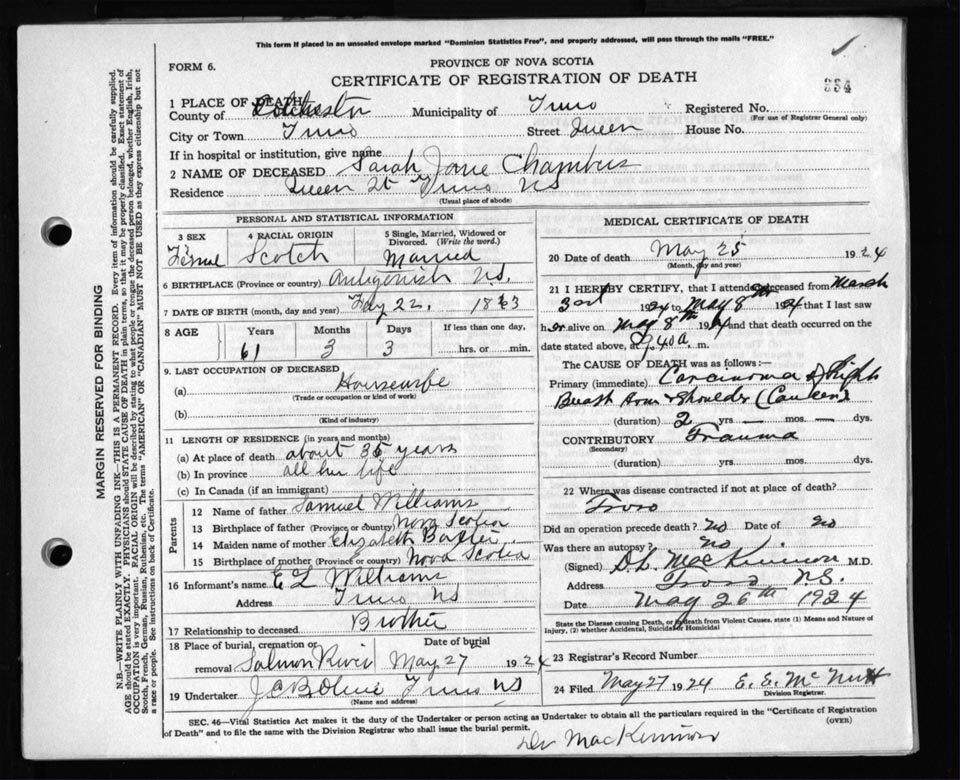 This form if placed in an unsealed envelope marked "Dominion Statistics Free", and properly addressed, will pass through the mails "FREE."
PROVINCE OF NOVA SCOTIA
FORM 6.
CERTIFICATE OF REGISTRATION OF DEATH
334
1 PLACE OF DEATH
County of Colchester Municipality of Truro Registered No.
(For use of Registrar General only)
City or Town Truro Street Queen House No.
If in hospital or institution, give name
2 NAME OF DECEASED Sarah Jane Chambers
Residence Queen St Truro NS
(Usual place of abode)
PERSONAL AND STATISTICAL INFORMATION
3 SEX 4 RACIAL ORIGIN 5 Single, Married, Widowed or Divorced. (Write the word.)
Female Scotch Married
6 BIRTHPLACE (Province or country) Antigonish N.S.
7 DATE OF BIRTH (month, day and year) 22. 1863
8 AGE Years Months Days If less than one day,
61 3 3 hrs. or min.
9. LAST OCCUPATION OF DECEASED
(a) Housewife
(Trade or occupation or kind of work)
(b)
(Kind of industry)
11 LENGTH OF RESIDENCE (in years and months)
(a) At place of death about 35 years
(b) In province all her life
(c) In Canada (if an immigrant)
Parents
12 Name of father Samuel Williams
13 Birthplace of father (Province or country) Nova Scotia
14 Maiden name of mother Elizabeth
15 Birthplace of mother (Province or country) Nova Scotia
16 Informant's name E L Williams
Address Truro NS
17 Relationship to deceased Brother
18 Place of burial, cremation or removal Date of burial
Salmon River May 27 1924
19 Undertaker Truro NS
(Name and address)
MEDICAL CERTIFICATE OF DEATH
20 Date of death May 25 1924
(Month, day and year)
21 I HEREBY CERTIFY, that I attended deceased from March
3rd 1924 to May 8th 1924 that I last saw
her alive on May 8th 1924 and that death occurred on the
date stated above, at 40 a. m.
The CAUSE OF DEATH was as follows:—
Primary (immediate) Carcinoma of Right
Breast Arm & Shoulder (Cancer)
(duration) 2 yrs — mos. — dys.
CONTRIBUTORY Trauma
(Secondary)
(duration) yrs mos. dys.
22 Where was disease contracted if not at place of death?
Truro
Did an operation precede death? No Date of No
Was there an autopsy? No
(Signed) D.L. MacKinnon M.D.
Address Truro N.S.
Date May 26th 1924
State the Disease causing Death, or in death from Violent Causes, state (1) Means and Nature of
Injury, (2) whether Accidental, Suicidal or Homicidal
23 Registrar's Record Number
24 Filed May 27 1924 E. E. McNutt
Division Registrar.
SEC. 46—Vital Statistics Act makes it the duty of the Undertaker or person acting as Undertaker to obtain all the particulars required in the "Certificate of Registration
of Death" and to file the same with the Division Registrar who shall issue the burial permit.
(OVER)
Dr MacKinnon
MARGIN RESERVED FOR BINDING
N.B.—WRITE PLAINLY WITH UNFADING INK—THIS IS A PERMANENT RECORD. Every item of information should be carefully supplied.
AGE should be stated EXACTLY. PHYSICIANS should STATE CAUSE OF DEATH in plain terms, so that it may be properly classified. Exact statement of
OCCUPATION is very important. RACIAL ORIGIN will be described by stating to what people or tongue the deceased person belonged, whether English, Irish,
Scotch, French, German, Russian, Ruthenian, etc. The terms "AMERICAN" or "CANADIAN" MUST NOT BE USED as they express citizenship but not
a race or people. See instructions on back of Certificate.